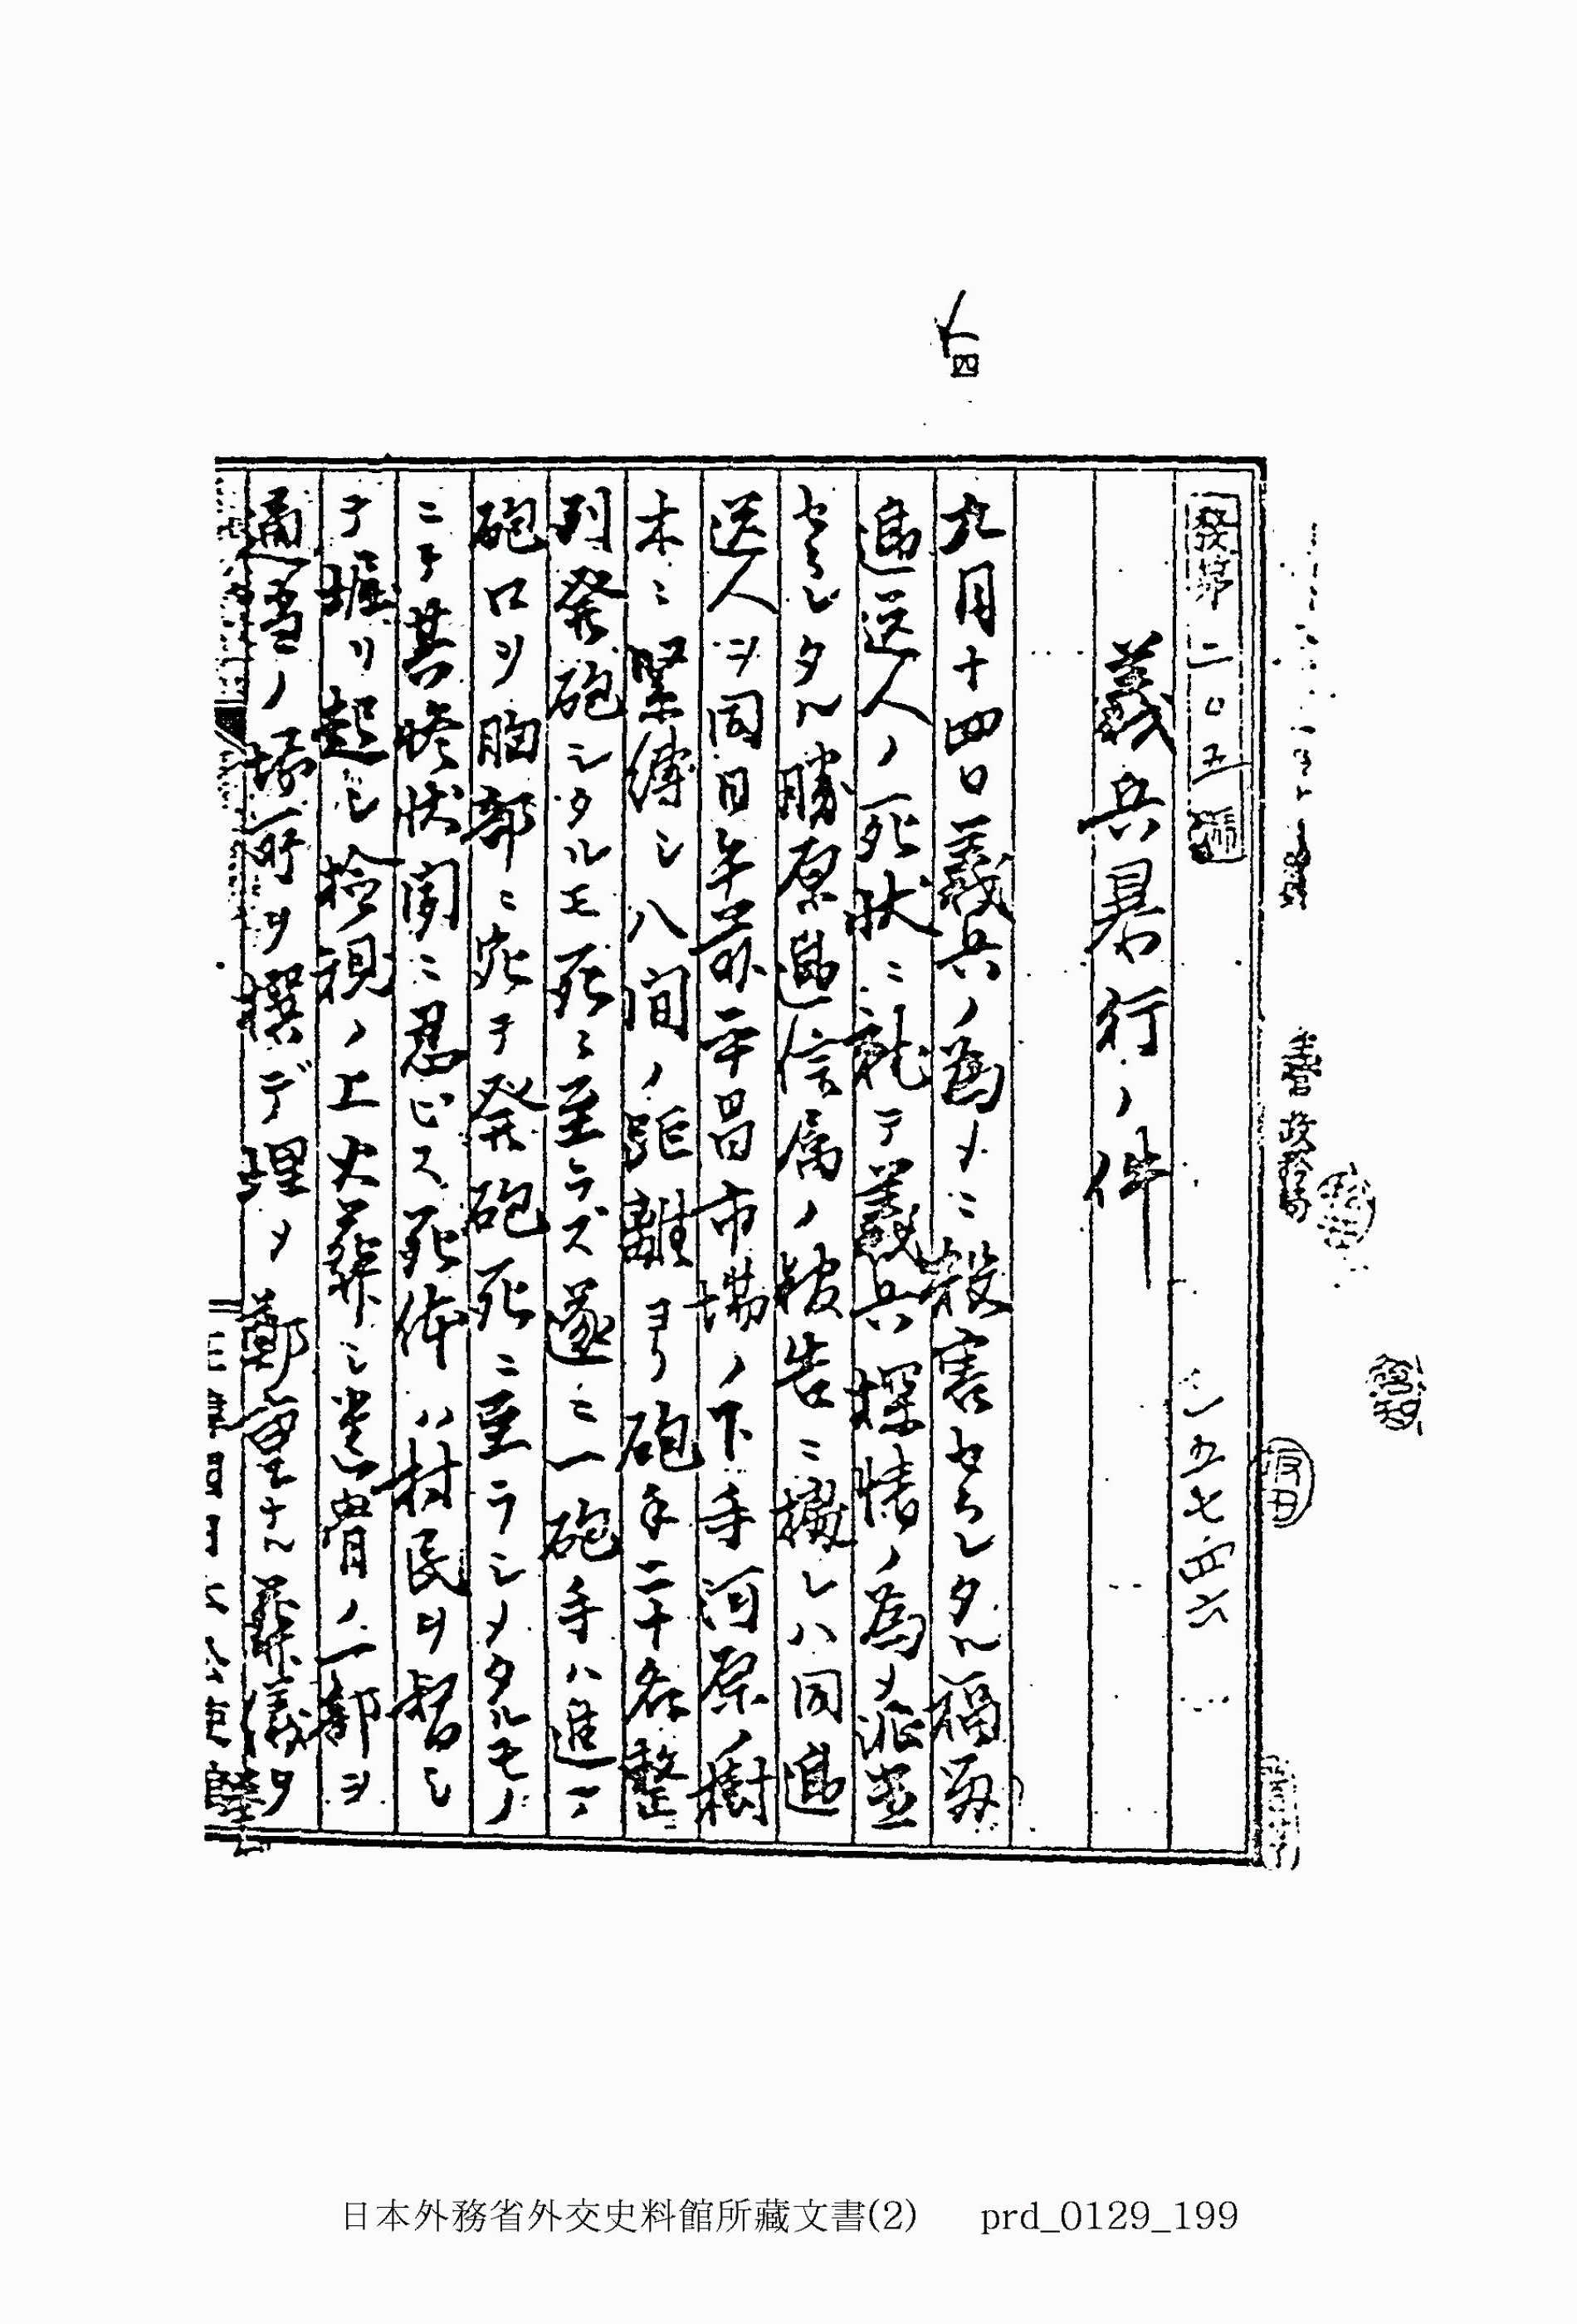 發第二〇五號
義兵暴行ノ件
九月十四日義兵ノ為メニ殺害セラレタル福
逓送人ノ死状ニ就テ義兵探情ノ為メ派出
セラレタル勝原逓信属ノ報告ニ據レハ同逓
送人ヲ同日午前平昌市場ノ下手河原ノ樹
木ニ緊縛シ八間ノ距離ヨリ砲手二十名整
列発砲シタルモ死ニ至ラズ遂ニ一砲手ハ進テ
砲口ヲ胸部ニ宛テ発砲死ニ至ラシメタルモノ
ニテ其惨状聞ニ忍ビス死体ハ村民ヲ督シ
テ堀リ起シ検視ノ上火葬シ遺骨ノ一部ヲ
適当ノ場所ヲ撰デ埋メ鄭重ナル葬儀ヲ
四
主管政務局
日本外務省外交史料館所藏文書(2) prd_0129_199